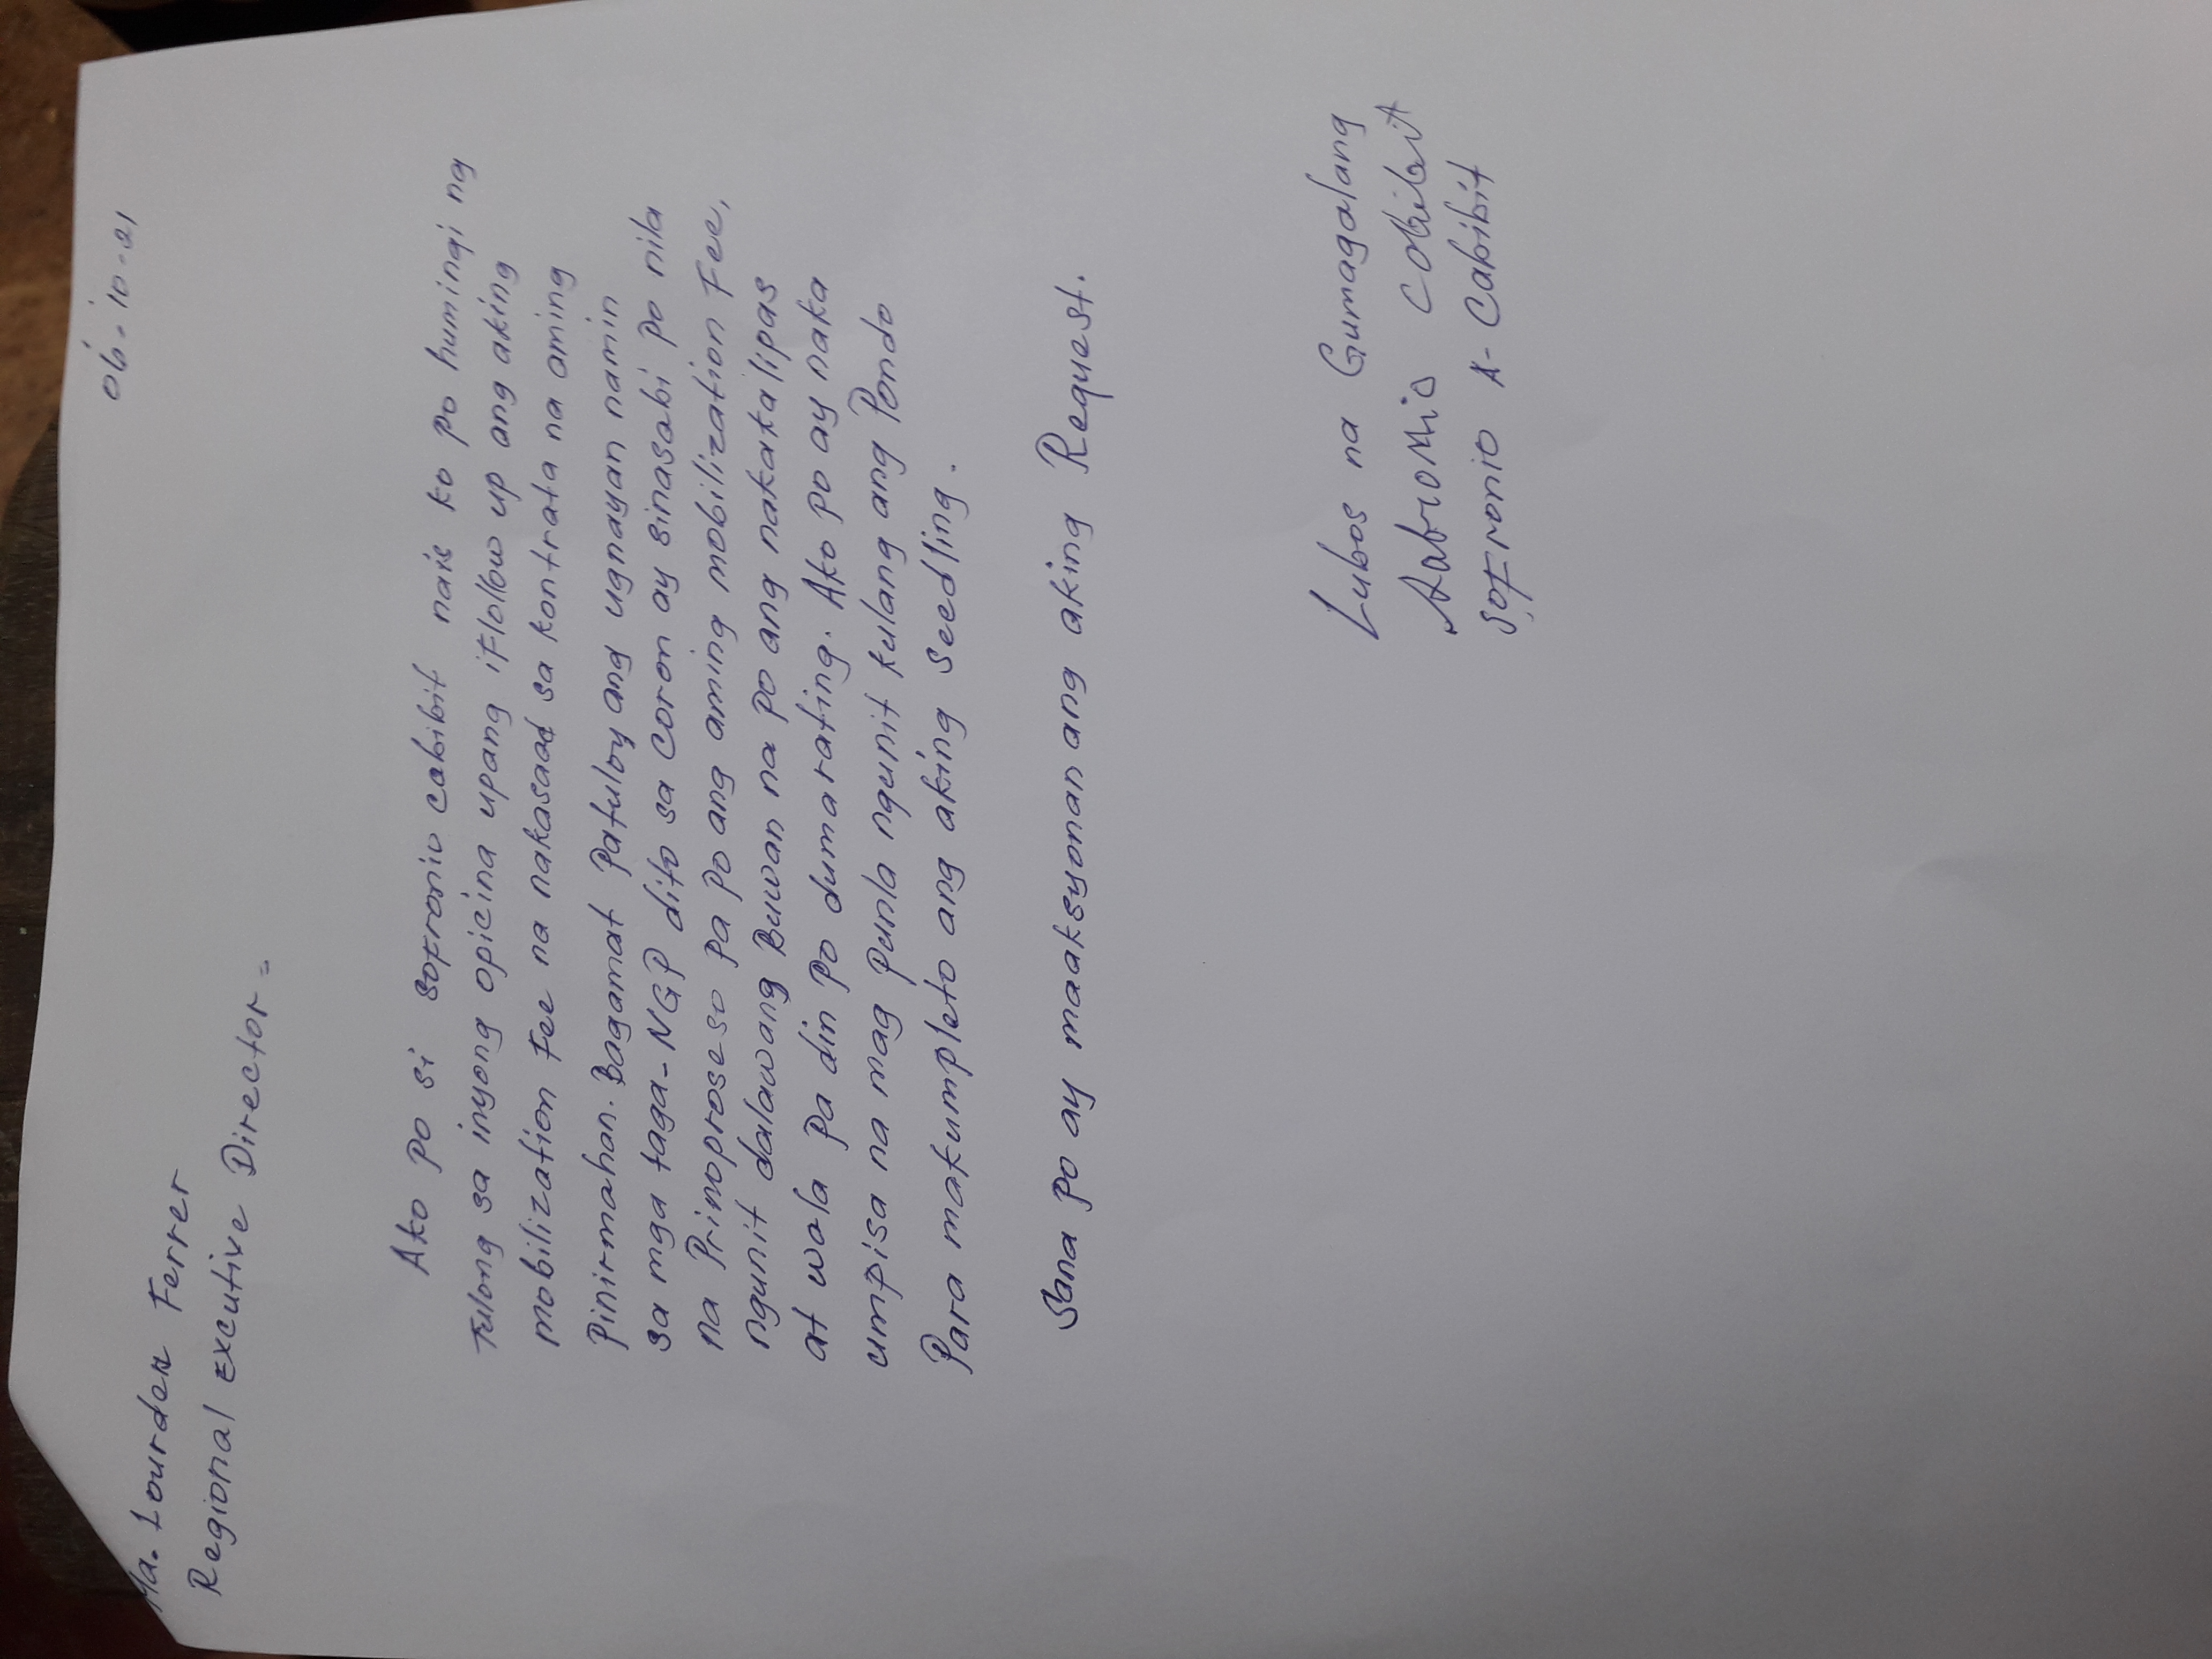 06-10-21
Ma. Lourdes Ferrer
Regional Excutive Director =
Ako po si Sofronio Cabibit nais ko po humingi ng
tulong sa inyong opicina upang ifollow up ang aking
mobilization Fee na nakasaad sa kontrata na aming
Pinirmahan. Bagamat Patuloy ang ugnayan namin
sa mga taga-NGP dito sa Coron ay sinasabi po nila
na Prinoproseso pa po ang aming mobilization Fee,
ngunit dalawang Buwan na po ang nakakalipas
at wala pa din po dumarating. Ako po ay naka
umpisa na mag punla ngunit kulang ang Pondo
Para makumpleto ang aking Seedling.
Sana po ay maaksyonan ang aking Request.
Lubos na Gumagalang
Sofronio Cabibit
Sofronio A. Cabibit